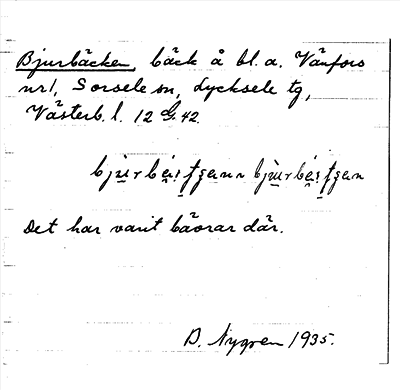 Bjurbäcken, bäck å bl. a. Vänfors
nr 1, Sorsele sn, Lycksele tg,
Västerb. l. 12 G 42
Det har varit bävrar där.
D. Nygren 1935.